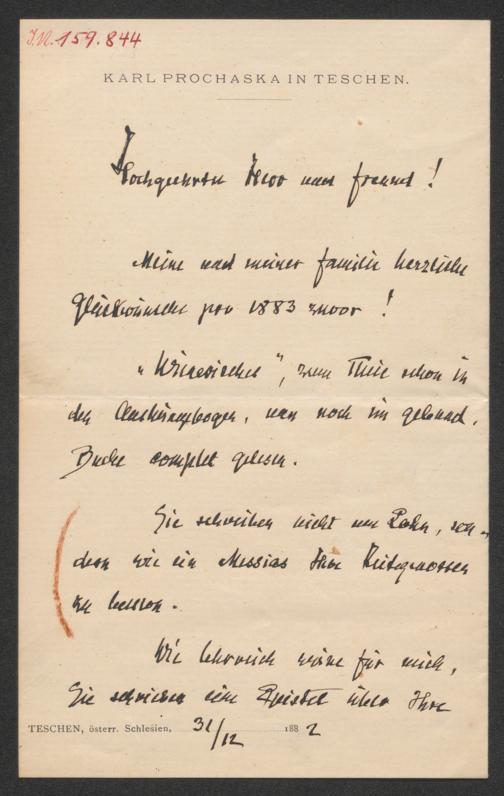 J.N. 159.844
KARL PROCHASKA IN TESCHEN.
Hochgeehrter Herr und Freund!
Meine und meiner Familie herzliche
Glückwünsche pro 1883 zuvor!
", zum Theil schon in
den Aushängebogen, nun noch im gebund.
Buche complet gelesen.
Sie schreiben nicht um Lohn, son-
dern wie ein Messias Ihre Zeitgenossen
zu bessern.
Wie lehrreich wäre für mich,
Sie schrieben eine Epistel über Ihre
TESCHEN, österr. Schlesien, 31/12 1882